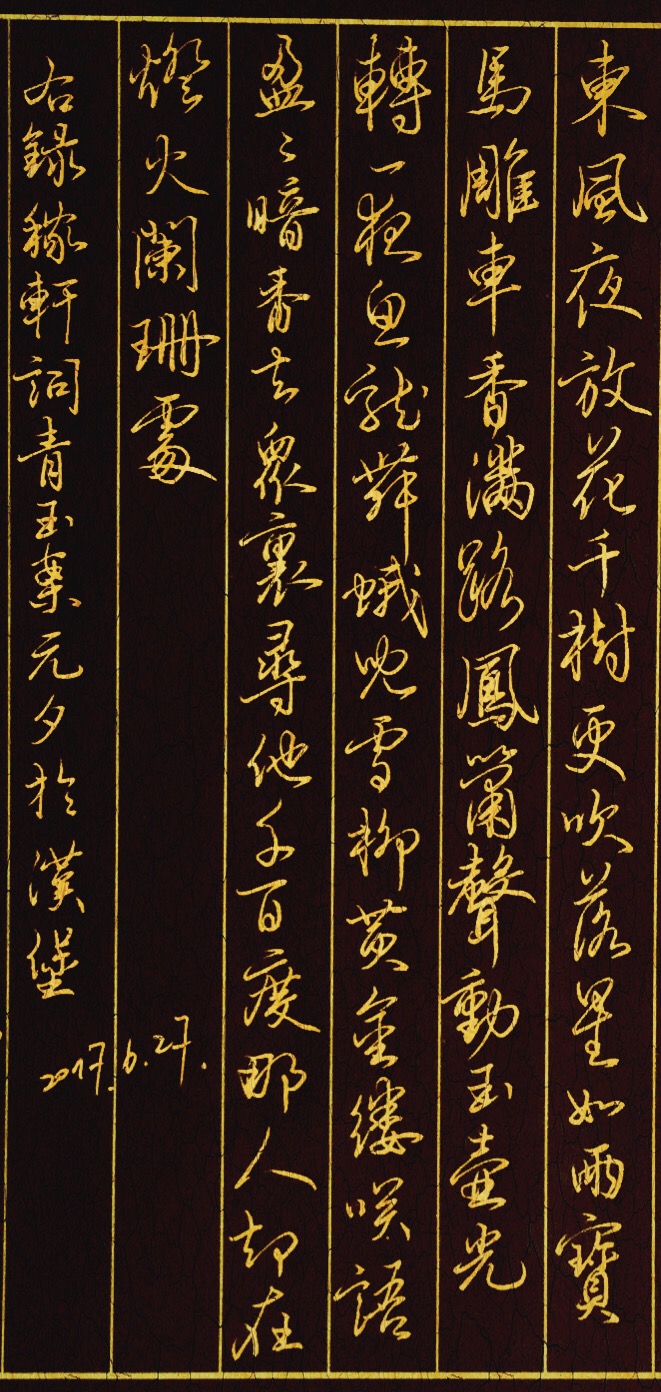 東風夜放花千樹更吹落星如雨寶
馬雕車香滿路鳳簫聲動玉壺光
轉一夜魚龍舞蛾兒雪柳黃金縷咲語
盈〻暗香去眾裏尋他千百度那人却在
燈火闌珊處
右錄稼軒詞青玉案元夕於漢堡
2017.6.27.